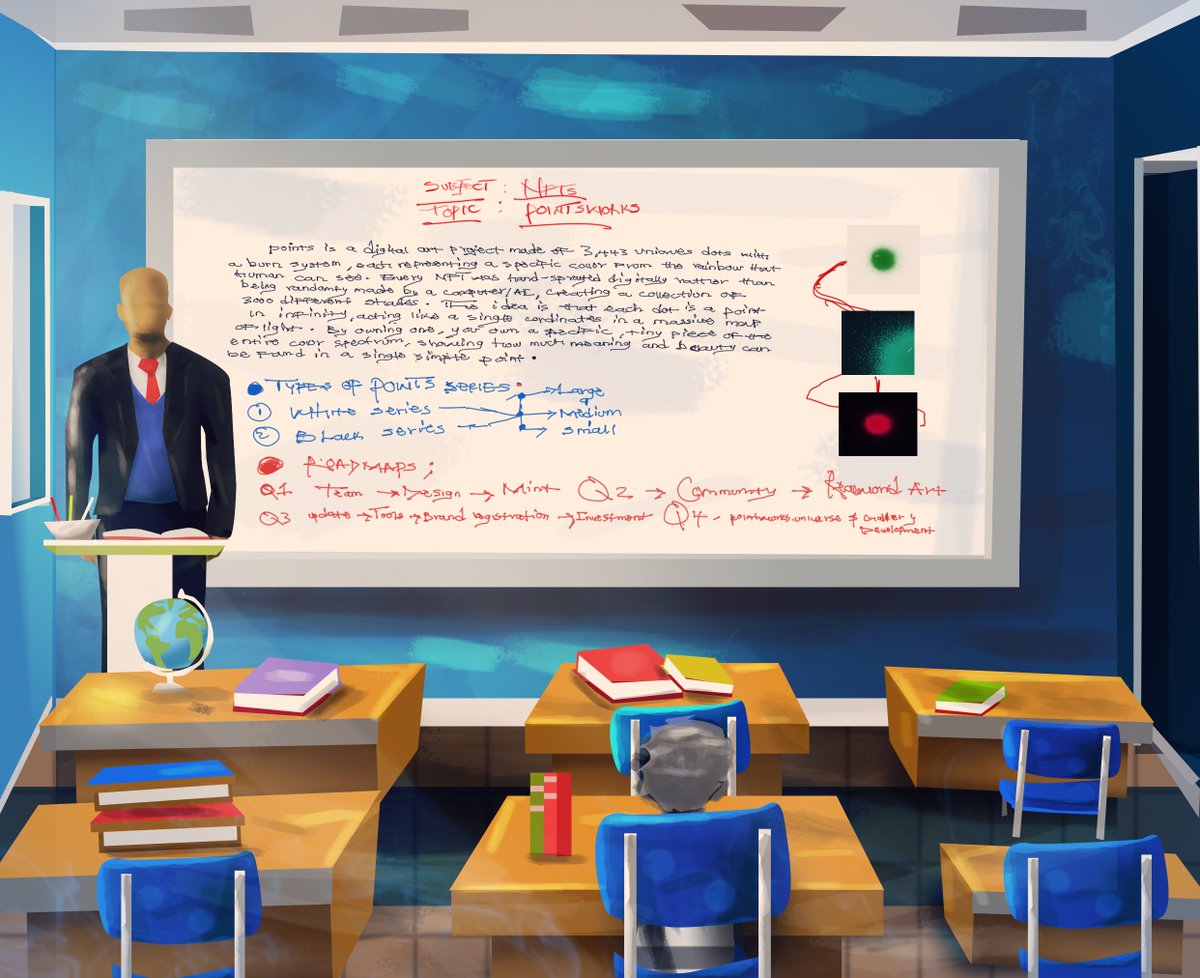 SUBJECT : NFTs
TOPIC : POINTSWORKS
points is a digital art project made of 3,443 dots with
a burn system, each representing a specific colour from the rainbow that
human can see. Every NFT was hand-sprayed digitally rather than
being randomly made by a computer/AI, creating a collection of
3000 different shades. The idea is that each dot is a point
in infinity, acting like a single cordinates in a massive map
of light. By owning one, you own a specific, tiny piece of the
entire color spectrum, showing how much meaning and beauty can
be found in a single simple point.
TYPES OF POINTS SERIES
Large
1 White series
Medium
2 Black series
small
ROADMAPS ;
Q1 Team → Design → Mint Q2 → Community → Art
Q3 update → Tools → Brand registration → Investment Q4 - pointworks.universe & Gallery
Development